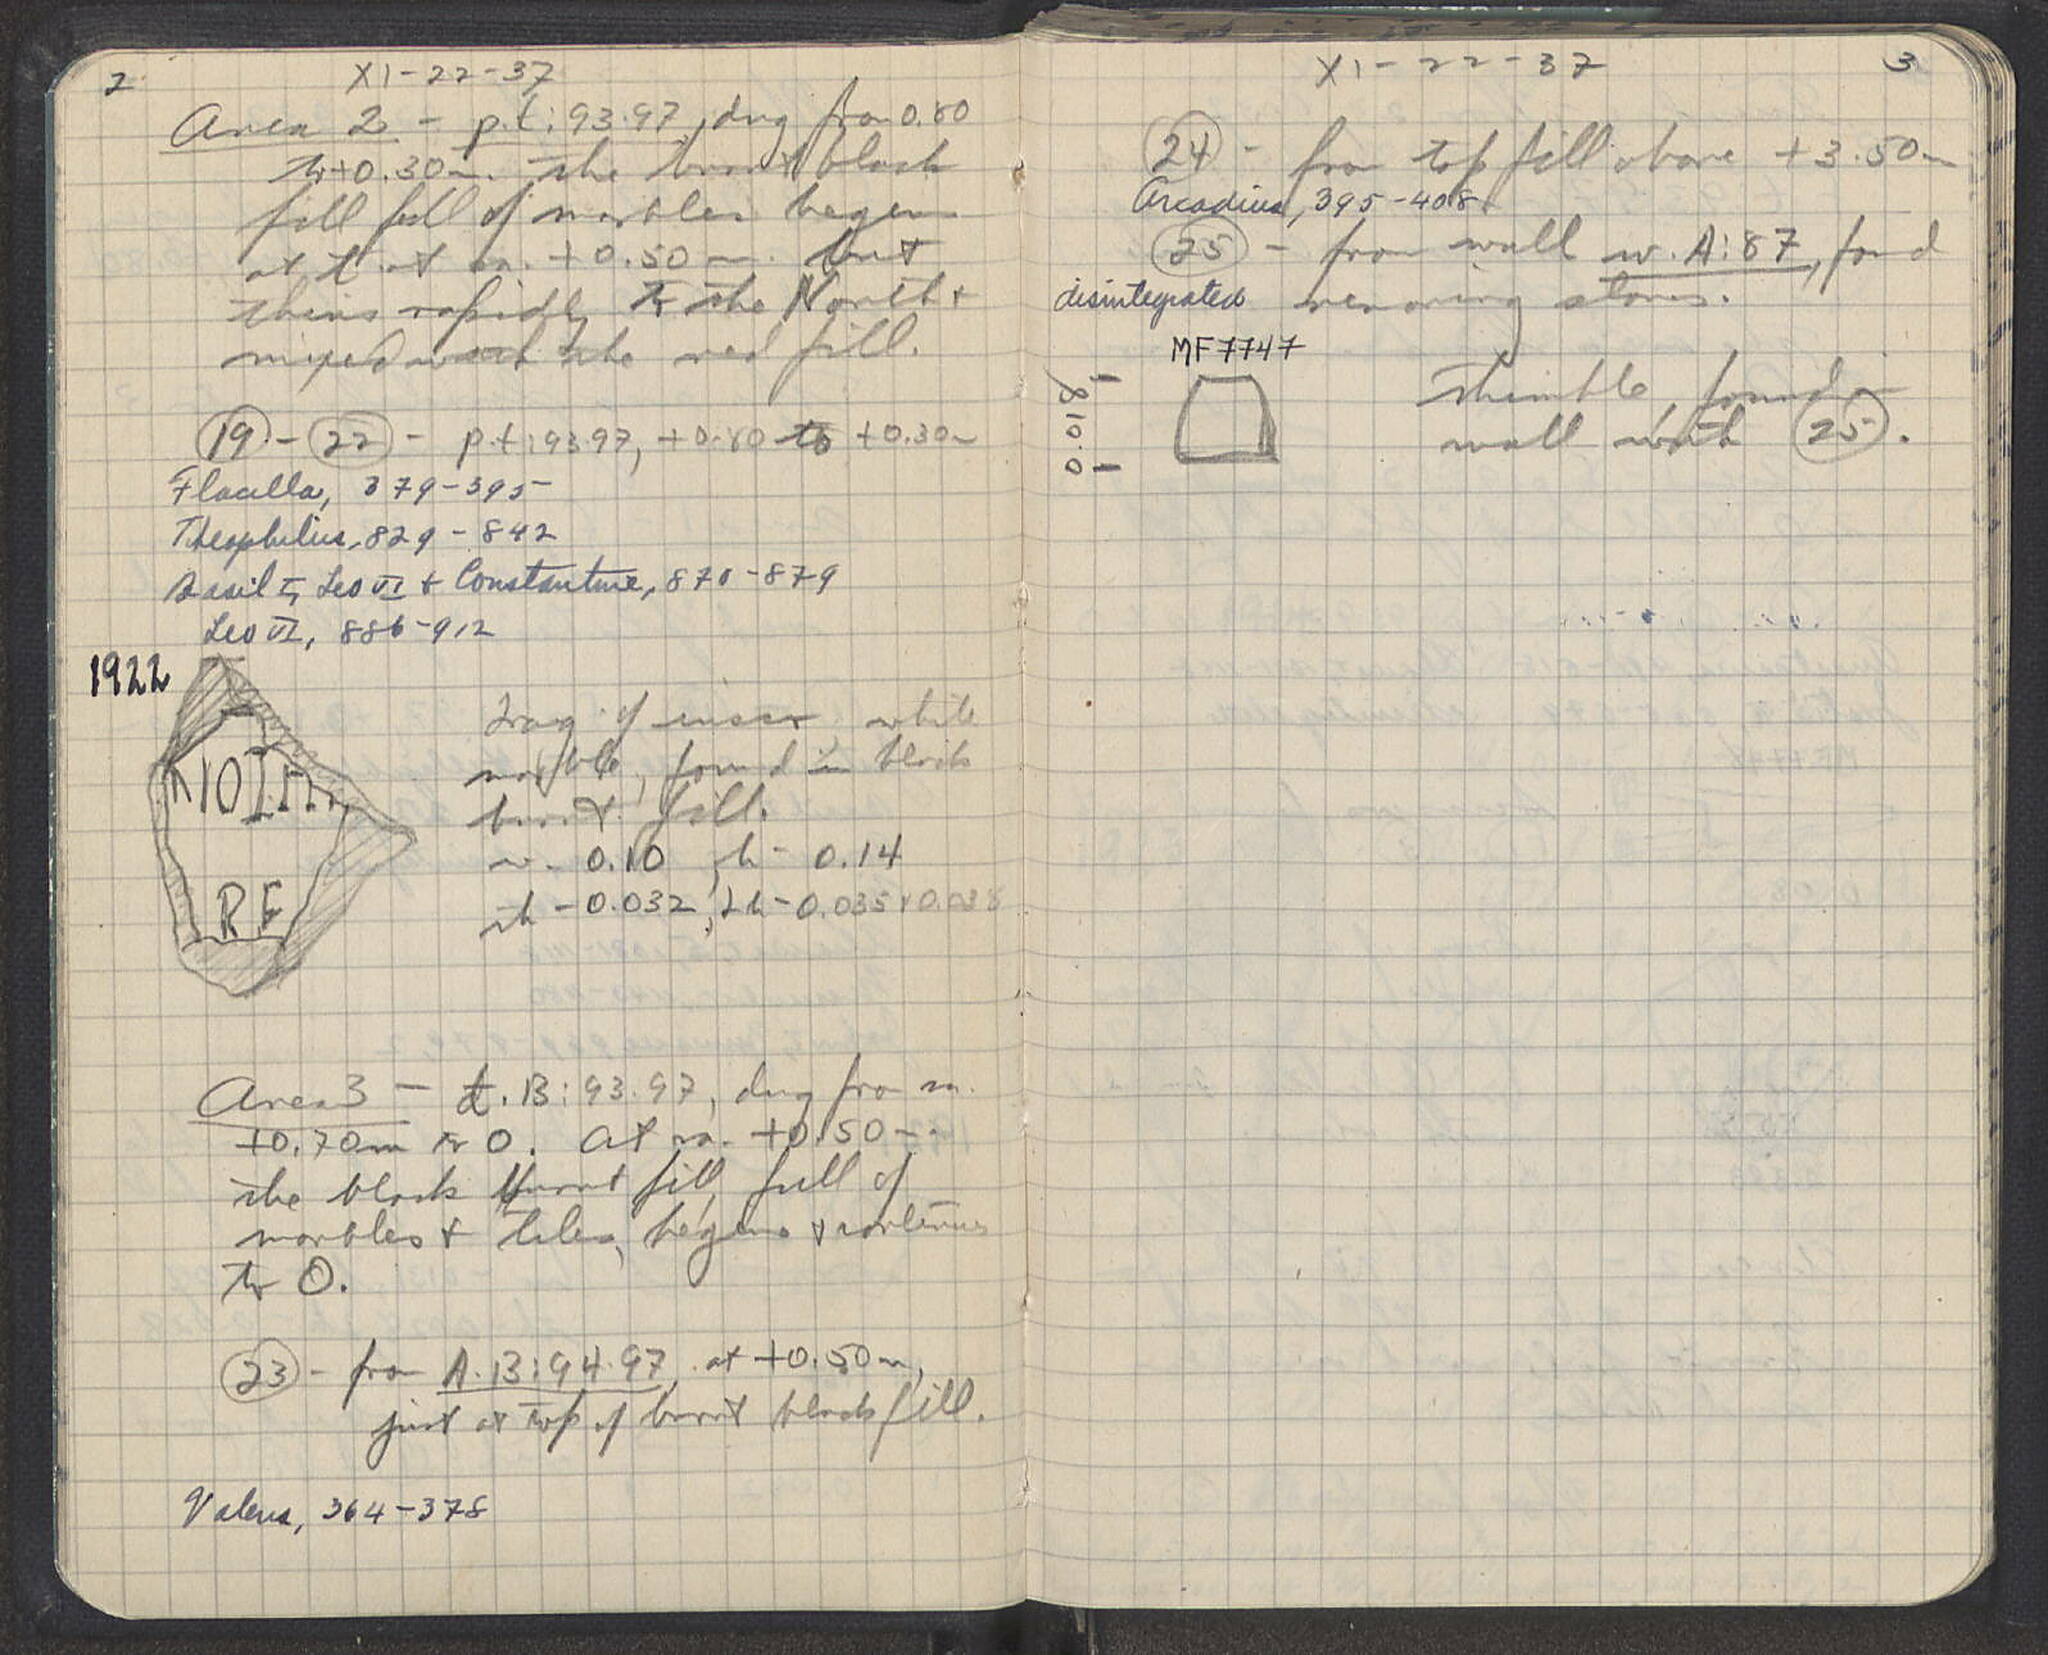 2
XI-22-37
Area 2 - p.t:93.97, dug from 0.80
to +0.30m. The burnt black
fill full of marbles begins
at t at ca. +0.50m. but
thins rapidly to the North +
mixed with the red fill.
19 - 22 - p.t:93.97, +0.80 to +0.30m
Flacilla, 379-395
Theophilus, 829-842
Basil I, Leo VI + Constantine, 870-879
Leo VI, 886-912
1922
ΙΟΙΠ
RE
Frag of inscr, white
marble, found in black
burnt fill.
w. 0.10, h- 0.14
th -0.032, Lh-0.035+0.038
Area 3 - t.B:93.97, dug from ca.
+0.70m to 0. At ca. +0.50m.
the black burnt fill, full of
marbles + tiles, begins + continues
to 0.
23 - from A.B:94.97, at +0.50m,
just at top of burnt black fill.
Valens, 364-378
XI-22-37
3
24 - from top fill above +3.50m
Arcadius, 395-408
25 - from wall w. A:87, found
disintegrated removing stones.
MF7747
0.018
Thimble, found in
wall with 25.